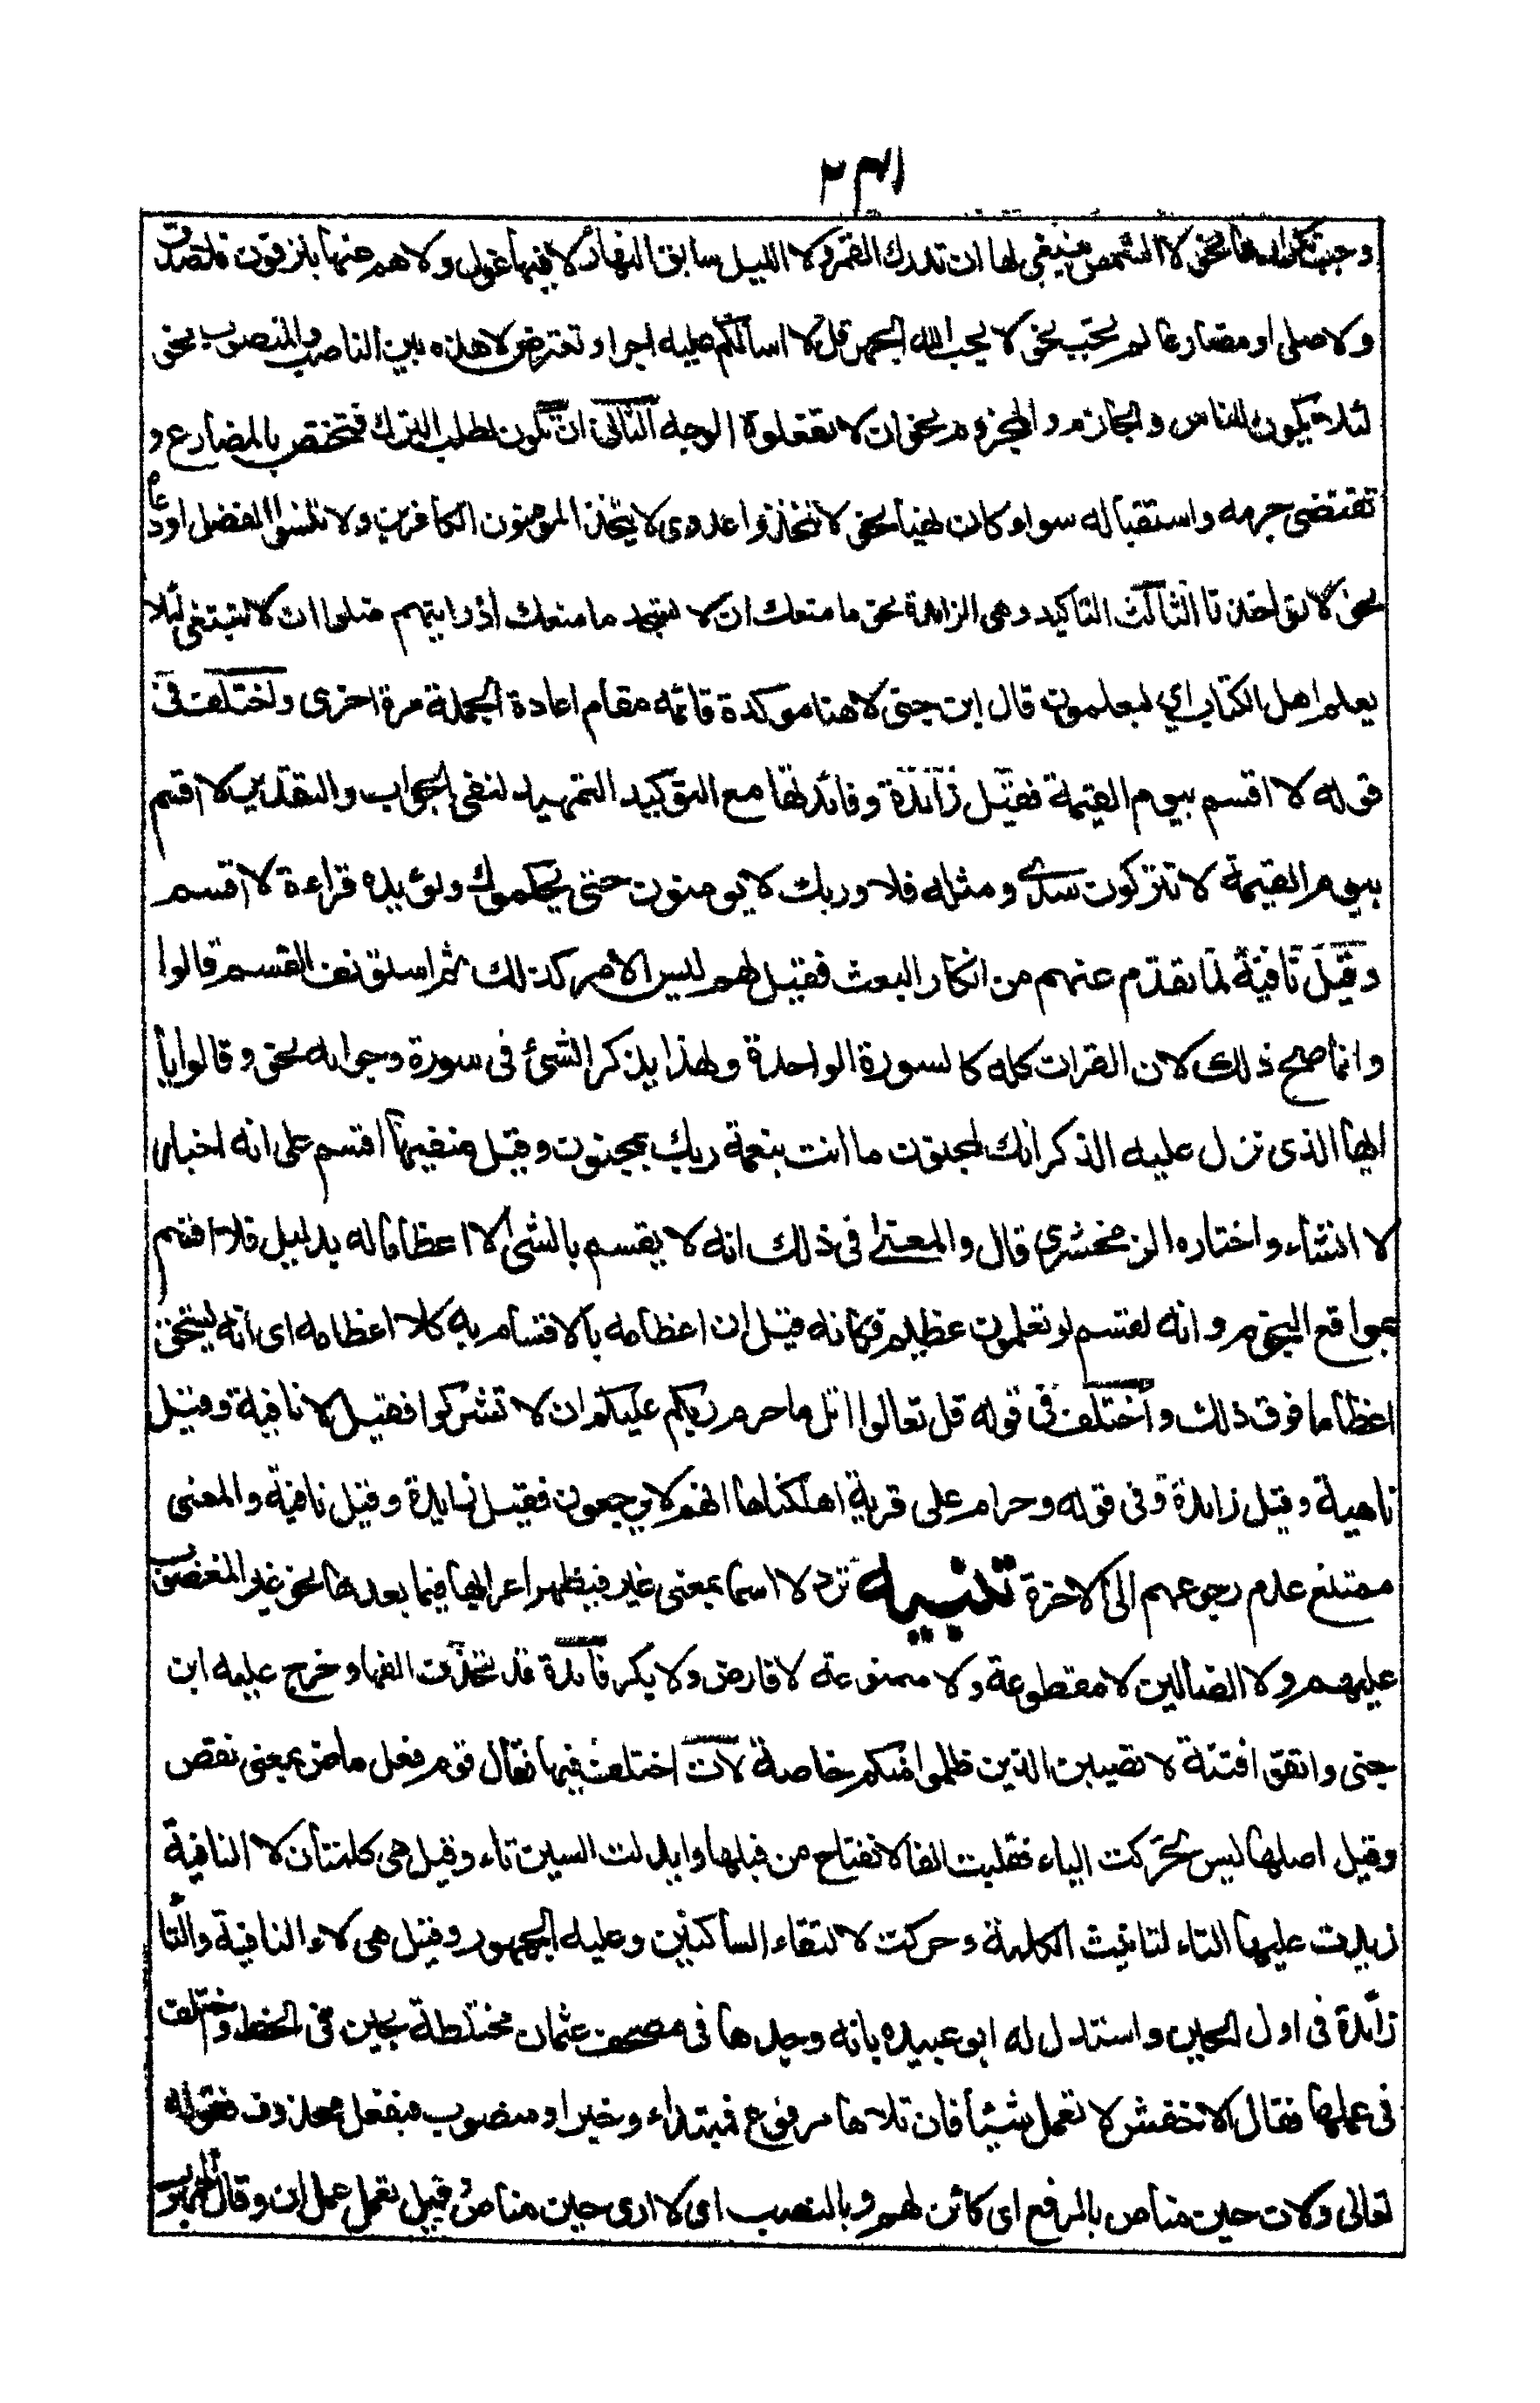 ٢٣١
وجب تكرارها نحو لا الشمس ينبغي لها ان تدرك القمر ولا الليل سابق النهار لا فيها غول ولا هم عنها ينزفون فلا صدق
ولا صلى او مضارعا لم يجب نحو لا يحب الله الجهر قل لا اسألكم عليه اجرا وتعترض لا هذه بين الناصب والمنصوب نحو
لئلا يكون للناس والجازم والمجزوم نحو ان لا تفعلوه الوجه الثانى ان تكون لطلب الترك فتختص بالمضارع و
تقتضى جزمه واستقباله سواء كان نهيا نحو لا تتخذوا عدوى لا يتخذ المومنون الكافرين ولا تنسوا الفضل او دعاء
نحو لا تواخذنا الثالث التاكيد وهى الزايدة نحو ما منعك ان لا تسجد ما منعك اذ رايتهم ضلوا ان لا تتبعنى لئلا
يعلم اهل الكتاب اي ليعلموا قال ابن جنى لا هنا موكدة قائمه مقام اعادة الجملة مرة اخرى واختلف فى
قوله لا اقسم بيوم القيمة فقيل زائدة وفائدتها مع التوكيد التمهيد لنفى الجواب والتقدير لا اقسم
بيوم القيمة لا تتركون سدى ومثله فلا وربك لا يومنون حتى يحكموك ويؤيده قراءة لا اقسم
وقيل نافية لما تقدم عنهم من انكار البعث فقيل لهم ليس الأمر كذلك ثم استونف القسم قالوا
وانما صح ذلك لان القران كله كالسورة الواحدة ولهذا يذكر الشئ فى سورة وجوابه نحو وقالوا يا
ايها الذى نزل عليه الذكر انك لمجنون ما انت بنعمة ربك بمجنون وقيل منفيها اقسم على انه اخبار
لا انشاء واختاره الزمخشري قال والمعنى فى ذلك انه لا يقسم بالشئ الا اعظاما له بدليل فلا اقسم
بمواقع النجوم وانه لقسم لو تعلمون عظيم فكانه قيل ان اعظامه بالاقسام به كلا اعظامه اى انه يستحق
اعظاما فوق ذلك واختلف فى قوله قل تعالوا اتل ما حرم ربكم عليكم ان لا تشركوا فقيل لا نافية وقيل
ناهية وقيل زايدة وفى قوله وحرام على قرية اهلكناها انهم لا يرجعون فقيل زايدة وقيل نافية والمعنى
ممتنع عدم رجوعهم الى الاخرة تنبيه ترد لا اسما بمعنى غير فيظهر اعرابها فيما بعدها نحو غير المغضوب
عليهم ولا الضالين لا مقطوعة ولا ممنوعة لا فارض ولا بكر فائدة قد تحذف الفها وخرج عليه ابن
جنى واتقوا فتنة لا تصيبن الذين ظلموا منكم خاصة لات اختلف فيها فقال قوم فعل ماض بمعنى نقص
وقيل اصلها ليس تحركت الياء فقلبت الفا لانفتاح من قبلها وابدلت السين تاء وقيل هى كلمتان لا النافية
زيدت عليها التاء لتانيث الكلمة وحركت لالتقاء الساكنين وعليه الجمهور وقيل هى لاء النافية والتا
زائدة فى اول الحين واستدل له ابو عبيده بانه وجدها فى مصحف عثمان مختلطة بحين فى الخط واختلف
فى عملها فقال الاخفش لا تعمل شيئا فان تلاها مرفوع فمبتداء وخبر او منصوب فبفعل محذوف فقوله
تعالى ولات حين مناص بالرفع اى كائن لهم وبالنصب اى لا ارى حين مناص وقيل تعمل عمل ان وقال الجمهور